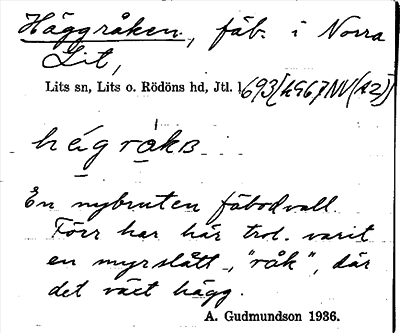 Häggråken, fäb. i Norra
Lit,
Lits sn, Lits o. Rödöns hd, Jtl.
hégråkʙ
En nybruten fäbodvall
Förr har här trol. varit
en myrslått, "råk", där
det växt hägg.
A. Gudmundson 1936.